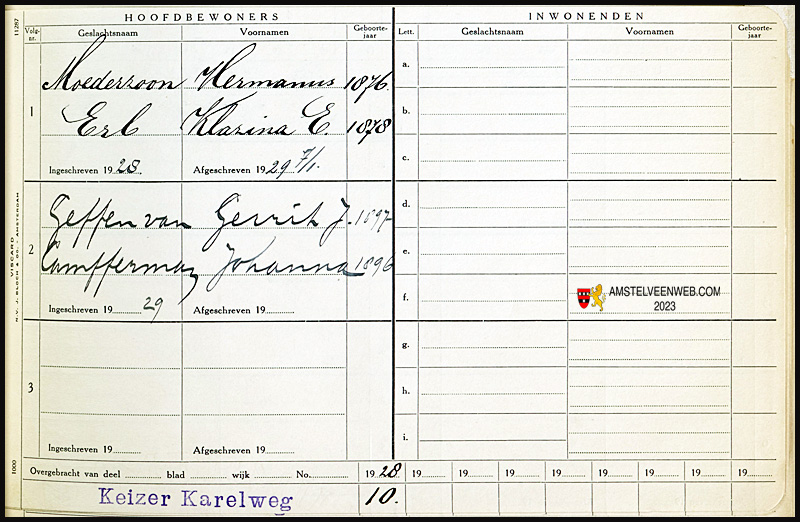 HOOFDBEWONERS
INWONENDEN
Volg-nr.
Geslachtsnaam
Voornamen
Geboorte-jaar
Lett.
Geslachtsnaam
Voornamen
Geboorte-jaar
1
Moederzoon Hermanus 1876.
Erb Klazina E. 1878
Ingeschreven 1928. Afgeschreven 1929 7/1.
2
Geffen van Gerrit J. 1897
Johanna 1896
Ingeschreven 19 29 Afgeschreven 19
3
Ingeschreven 19 Afgeschreven 19
a.
b.
c.
d.
e.
f.
g.
h.
i.
AMSTELVEENWEB.COM
2023
Overgebracht van deel blad wijk No. 1928. 19 19 19 19 19 19 19 19 19
Keizer Karelweg 10.
11287
VISCARD
N.V. J. BLOCH & CO. - AMSTERDAM
1000